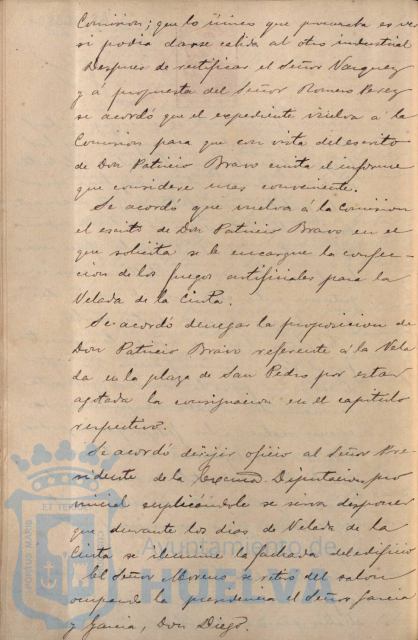 Comision; que lo único que procuraba es ver
si podia darse cabida al otro industrial
Despues de rectificar el Señor Vazquez
y á propuesta del Señor Romero Perez
se acordó que el expediente vuelva á la
Comision para que con vista del escrito
de Don Patricio Bravo emita el informe
que considere mas conveniente.
Se acordó que vuelva á la Comision
el escrito de Don Patricio Bravo en el
que solicita se le encargue la confec-
cion de los fuegos artificiales para la
Velada de la Cinta.
Se acordó denegar la proposicion de
Don Patricio Bravo referente á la Vela
da en la plaza de San Pedro por estar
agotada la consignacion en el capitulo
respectivo.
Se acordó dirijir oficio al Señor Pre-
sidente de la Excma. Diputacion pro
vincial suplicándole se sirva disponer
que durante los dias de Velada de la
Cinta se ilumine la fachada del edificio
El Señor Moreno se retiró del salon
ocupando la presidencia el Señor Garcia
y Garcia, Don Diego.
PORTUS MARIS
ET TERRAE
Ayuntamiento de
HUELVA